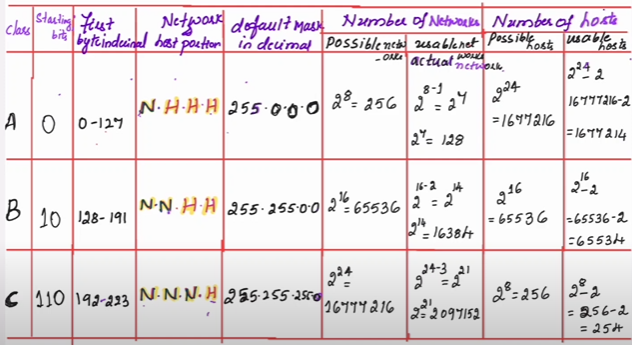 class
Starting bits
First byte in decimal
Network host portion
default Mask in decimal
Number of Networks
Possible networks
usable net works
actual network
Number of hosts
possible hosts
usable hosts
A
0
0-127
N.H.H.H
255.0.0.0
2^8 = 256
2^8-1 = 2^7
2^7 = 128
2^24
=1677216
2^24-2
16777216-2
=1677214
B
10
128-191
N.N.H.H
255.255.0.0
2^16=65536
2^16-2 = 2^14
2^14=16384
2^16
=65536
2^16-2
=65536-2
=65534
C
110
192-223
N.N.N.H
255.255.255.0
2^24
=
16777216
2^24-3=2^21
2^21=2097152
2^8=256
2^8-2
=256-2
=254